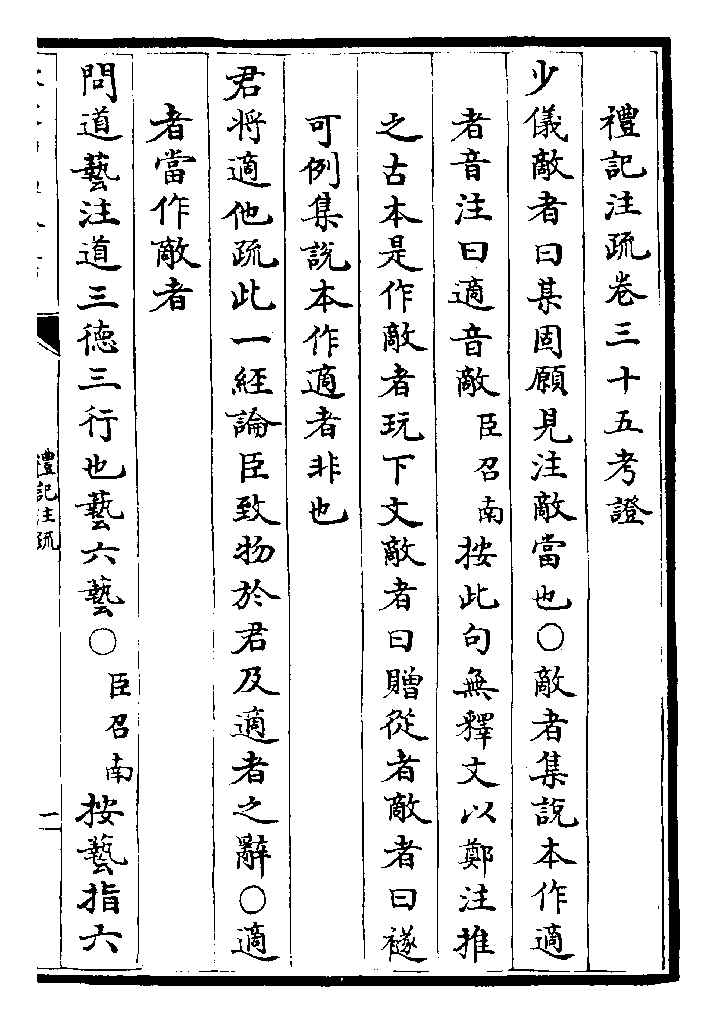 禮記注疏卷三十五考證
少儀敵者曰某固願見注敵當也○敵者集說本作適
者音注曰適音敵臣召南按此句無釋文以鄭注推
之古本是作敵者玩下文敵者曰贈從者敵者曰襚
可例集說本作適者非也
君將適他疏此一經論臣致物於君及適者之辭○適
者當作敵者
問道藝注道三德三行也藝六藝○臣召南按藝指六
禮記注疏